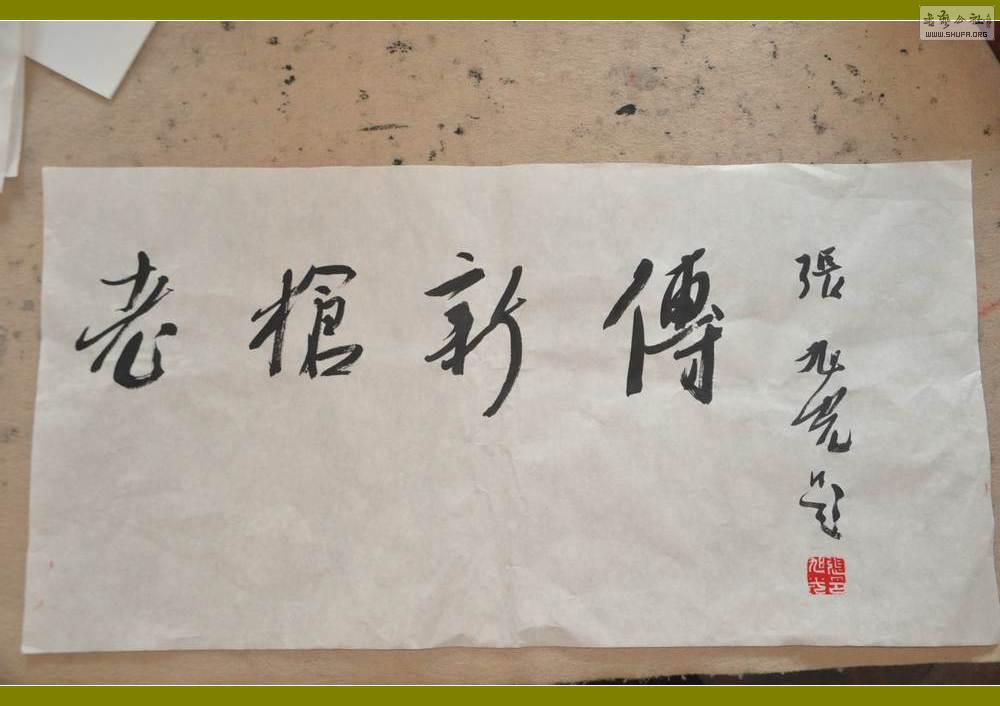 老槍新傳
張旭光題
書法公社
WWW.SHUFA.ORG
張旭光印